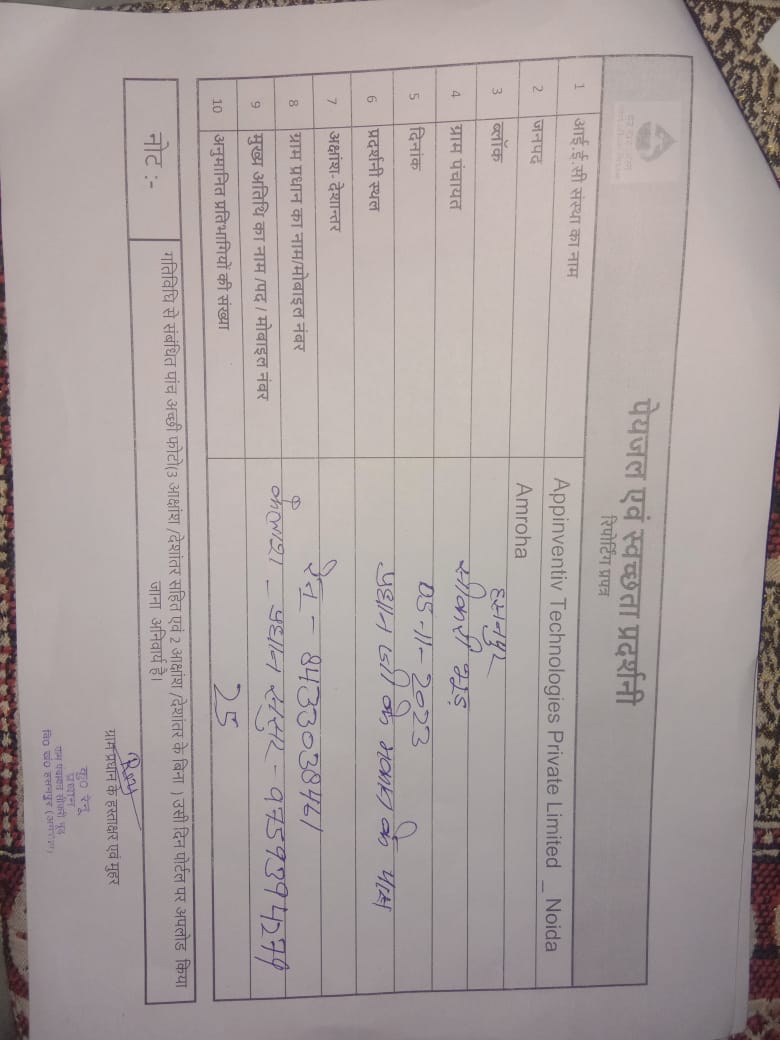 पेयजल एवं स्वच्छता प्रदर्शनी
रिपोर्टिंग प्रपत्र
1 आई.ई.सी संस्था का नाम Appinventiv Technologies Private Limited _ Noida
2 जनपद Amroha
3 ब्लॉक हसनपुर
4 ग्राम पंचायत
5 दिनांक 05-11-2023
6 प्रदर्शनी स्थल प्रधान जी के मकान के पास
7 अक्षांश- देशान्तर
8 ग्राम प्रधान का नाम/मोबाइल नंबर रेनु - 8433038461
9 मुख्य अतिथि का नाम /पद / मोबाइल नंबर - प्रधान ससुर - 9759394279
10 अनुमानित प्रतिभागियों की संख्या 25
नोट :- गतिविधि से संबंधित पांच अच्छी फोटो(3 आक्षांश /देशांतर सहित एवं 2 आक्षांश /देशांतर के बिना ) उसी दिन पोर्टल पर अपलोड किया
जाना अनिवार्य है।
ग्राम प्रधान के हस्ताक्षर एवं मुहर
प्रधान